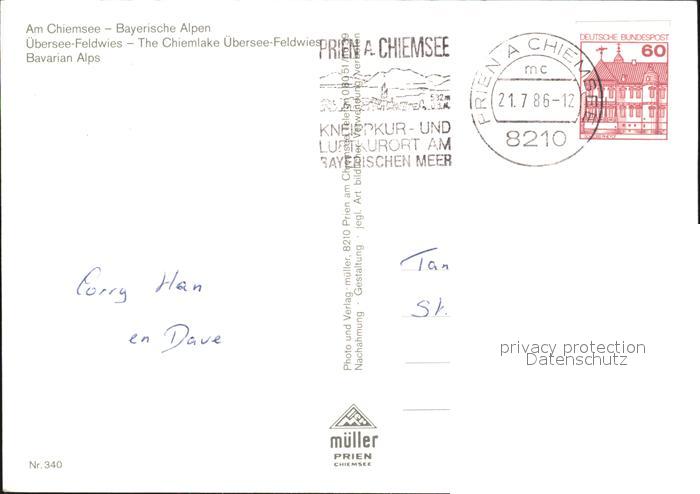 Am Chiemsee – Bayerische Alpen
Übersee-Feldwies – The Chiemlake Übersee-Feldwies
Bavarian Alps
PRIEN A. CHIEMSEE
532m
Ü.D.M.
KNEIPPKUR- UND
LUFTKURORT AM
BAYERISCHEN MEER
PRIEN A CHIEMSEE
mc
21.7.86-12
8210
DEUTSCHE BUNDESPOST
60
Photo und Verlag müller, 8210 Prien am Chiemsee, Telefon
Nachahmung · Gestaltung · jegl. Art bildlicher Verwendung verboten
Corry Han
en Dave
Tan
St.
privacy protection
Datenschutz
müller
PRIEN
CHIEMSEE
Nr. 340